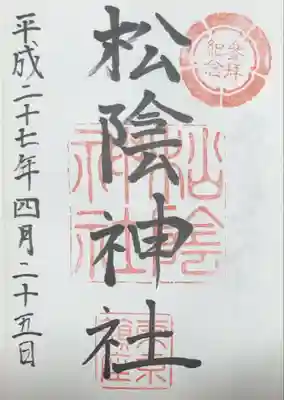 参拝
紀念
松陰神社
松陰
神社
東京
鎮座
平成二十七年四月二十五日